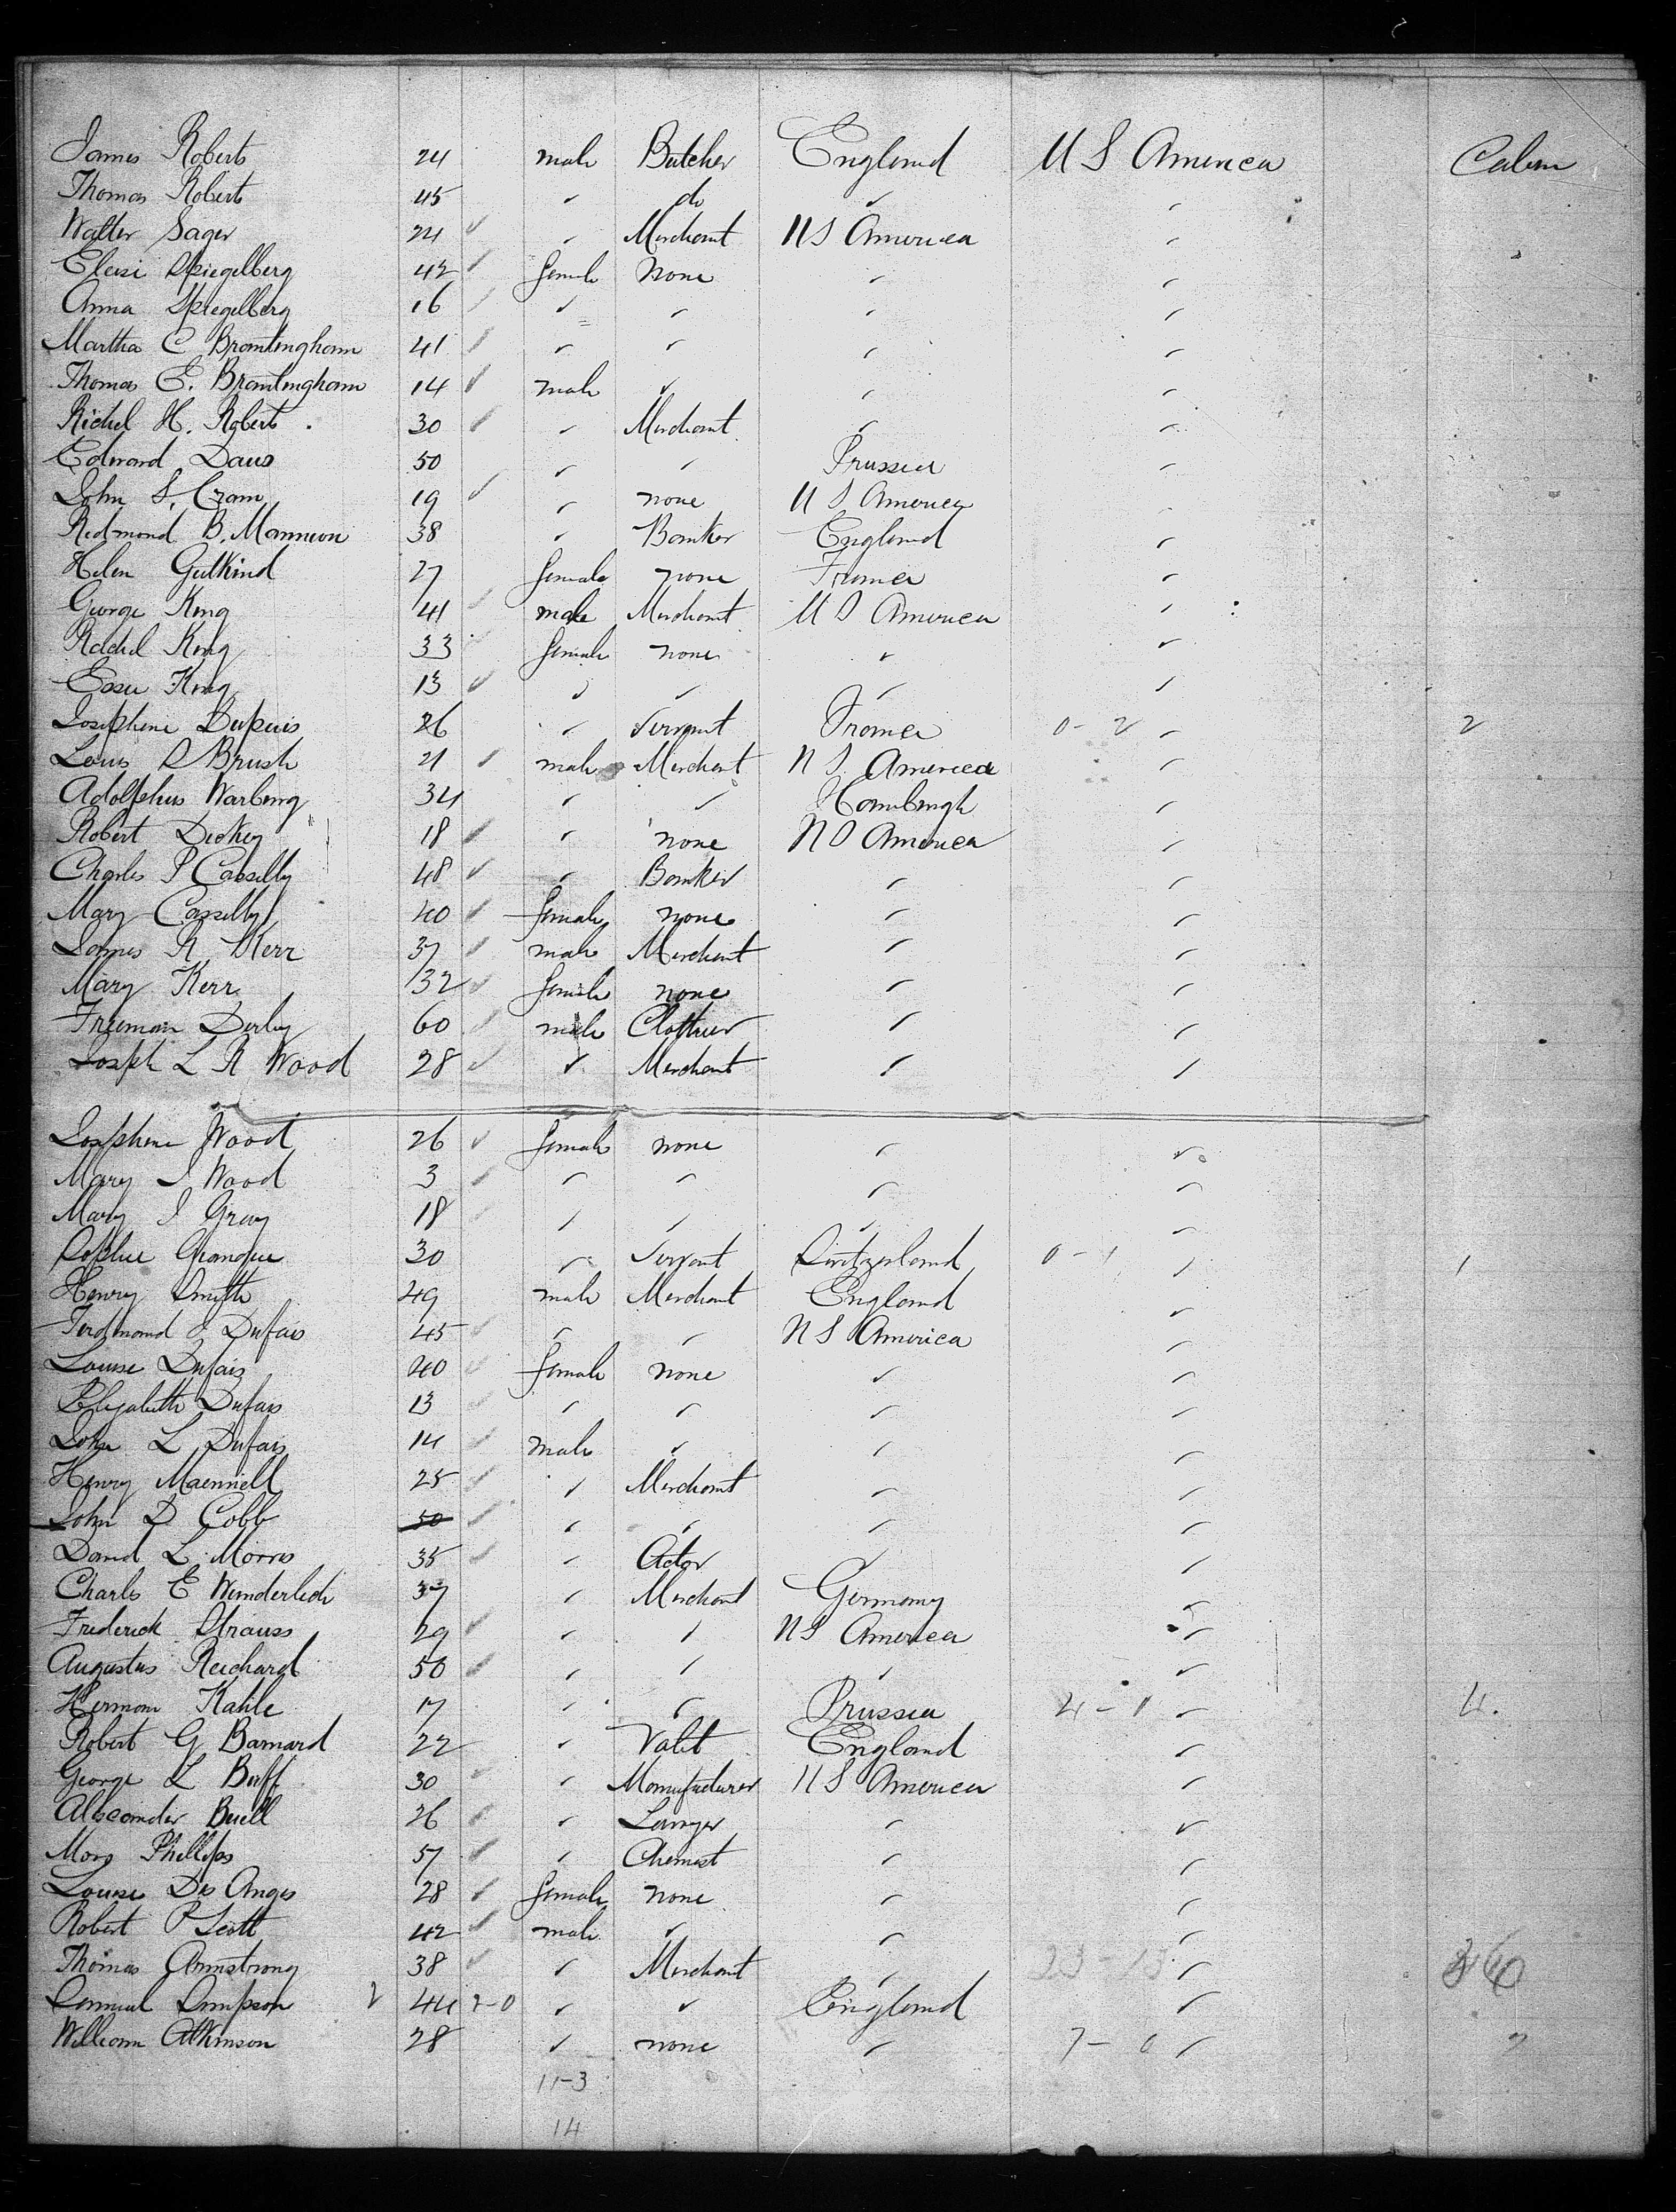 James Roberts 24 male Butcher England U S America Cabin
Thomas Roberts 45 " do " "
Walter Sager 24 " Merchant U S America "
Eleisi Spiegelberg 42 female None " "
Anna Spiegelberg 16 " " " "
Martha C Brantingham 41 " " " "
Thomas E. Brantingham 14 male " " "
Richd H. Roberts 30 " Merchant " "
Edward Daus 50 " " Prussia "
John S. Cram 19 " none U S America
Redmond B. Mannion 38 " Banker England "
Helen Gutkind 27 female none France "
George King 41 male Merchant U S America "
Rachel King 33 female none " "
Essie King 13 " " " "
Josephine Dupuis 26 " Servant France 0-2 " 2
Louis D Brush 21 male Merchant U S America "
Adolphus Warburg 34 " " Hamburgh "
Robert Dickey 18 " none U S America "
Charles P Cassilly 48 " Banker " "
Mary Cassilly 40 female none " "
James R Kerr 37 male Merchant " "
Mary Kerr 32 female none " "
Freeman Derby 60 male Clothier " "
Joseph L R Wood 28 " Merchant " "
Josephine Wood 26 female none " "
Mary J Wood 3 " " " "
Mary J Gray 18 " " " "
Sophie 30 " Servant Switzerland 0-1 " 1
Henry Smyth 49 male Merchant England "
Ferdinand J Dufais 45 " " U S America "
Louise Dufais 40 female none " "
Elizabeth Dufais 13 " " " "
John L Dufais 14 male " " "
Henry Maennell 25 " Merchant " "
John D Cobb 50 " " " "
David L Morris 35 " Actor " "
Charles E Wunderlich 37 " Merchant Germany "
Frederick Strauss 29 " " U S America "
Augustus Reichard 50 " " " "
Herman Kahle 17 " " Prussia 4-1 " 4.
Robert G Barnard 22 " Valet England "
George L Buff 30 " Manufacturer U S America "
Alexander Buell 26 " Lawyer " "
Moro Phillips 57 " Chemist " "
Louise Des Anges 28 female none " "
Robert P Scott 42 male " " "
Thomas Armstrong 38 " Merchant " 23-13 "
Samuel Simpson 2 44 2-0 " " England "
William Atkinson 28 " none " 7-0 " 7
11-3
14